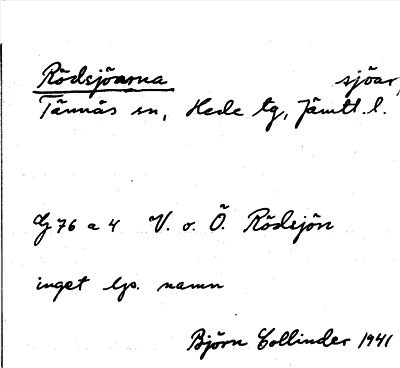 Rödsjöarna sjöar,
Tännäs sn, Hede tg, Jämtl. l.
G 76 a 4 V. o. Ö. Rödsjön
inget lp. namn
Björn Collinder 1941